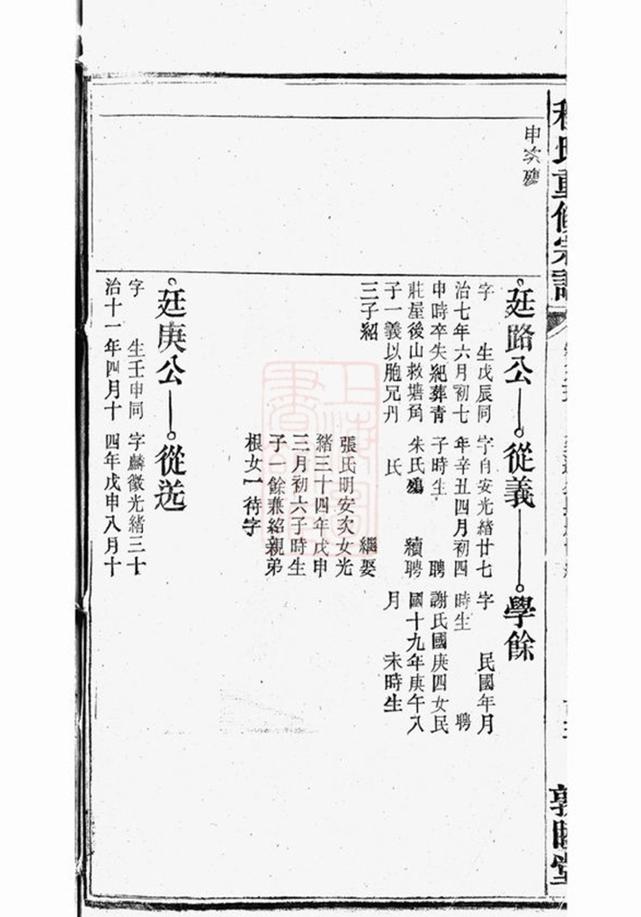 氏重修宗譜
敦睦堂
申次殤
廷路公
字 生戊辰同
治七年六月初七
申時卒失紀葬青
莊屋後山救塘角
子一義以胞兄丹
三子紹
從義
字自安光緒廿七
年辛丑四月初四
子時生 聘
朱氏殤 續聘
氏 繼娶
張氏明安次女光
緒三十四年戊申
三月初六子時生
子一餘兼紹親弟
根女一待字
學餘
字 民國年月
時生 聘
謝氏國庚四女民
國十九年庚午八
月 未時生
廷庚公
字 生壬申同
治十一年四月十
從送
字麟徵光緒三十
四年戊申八月十